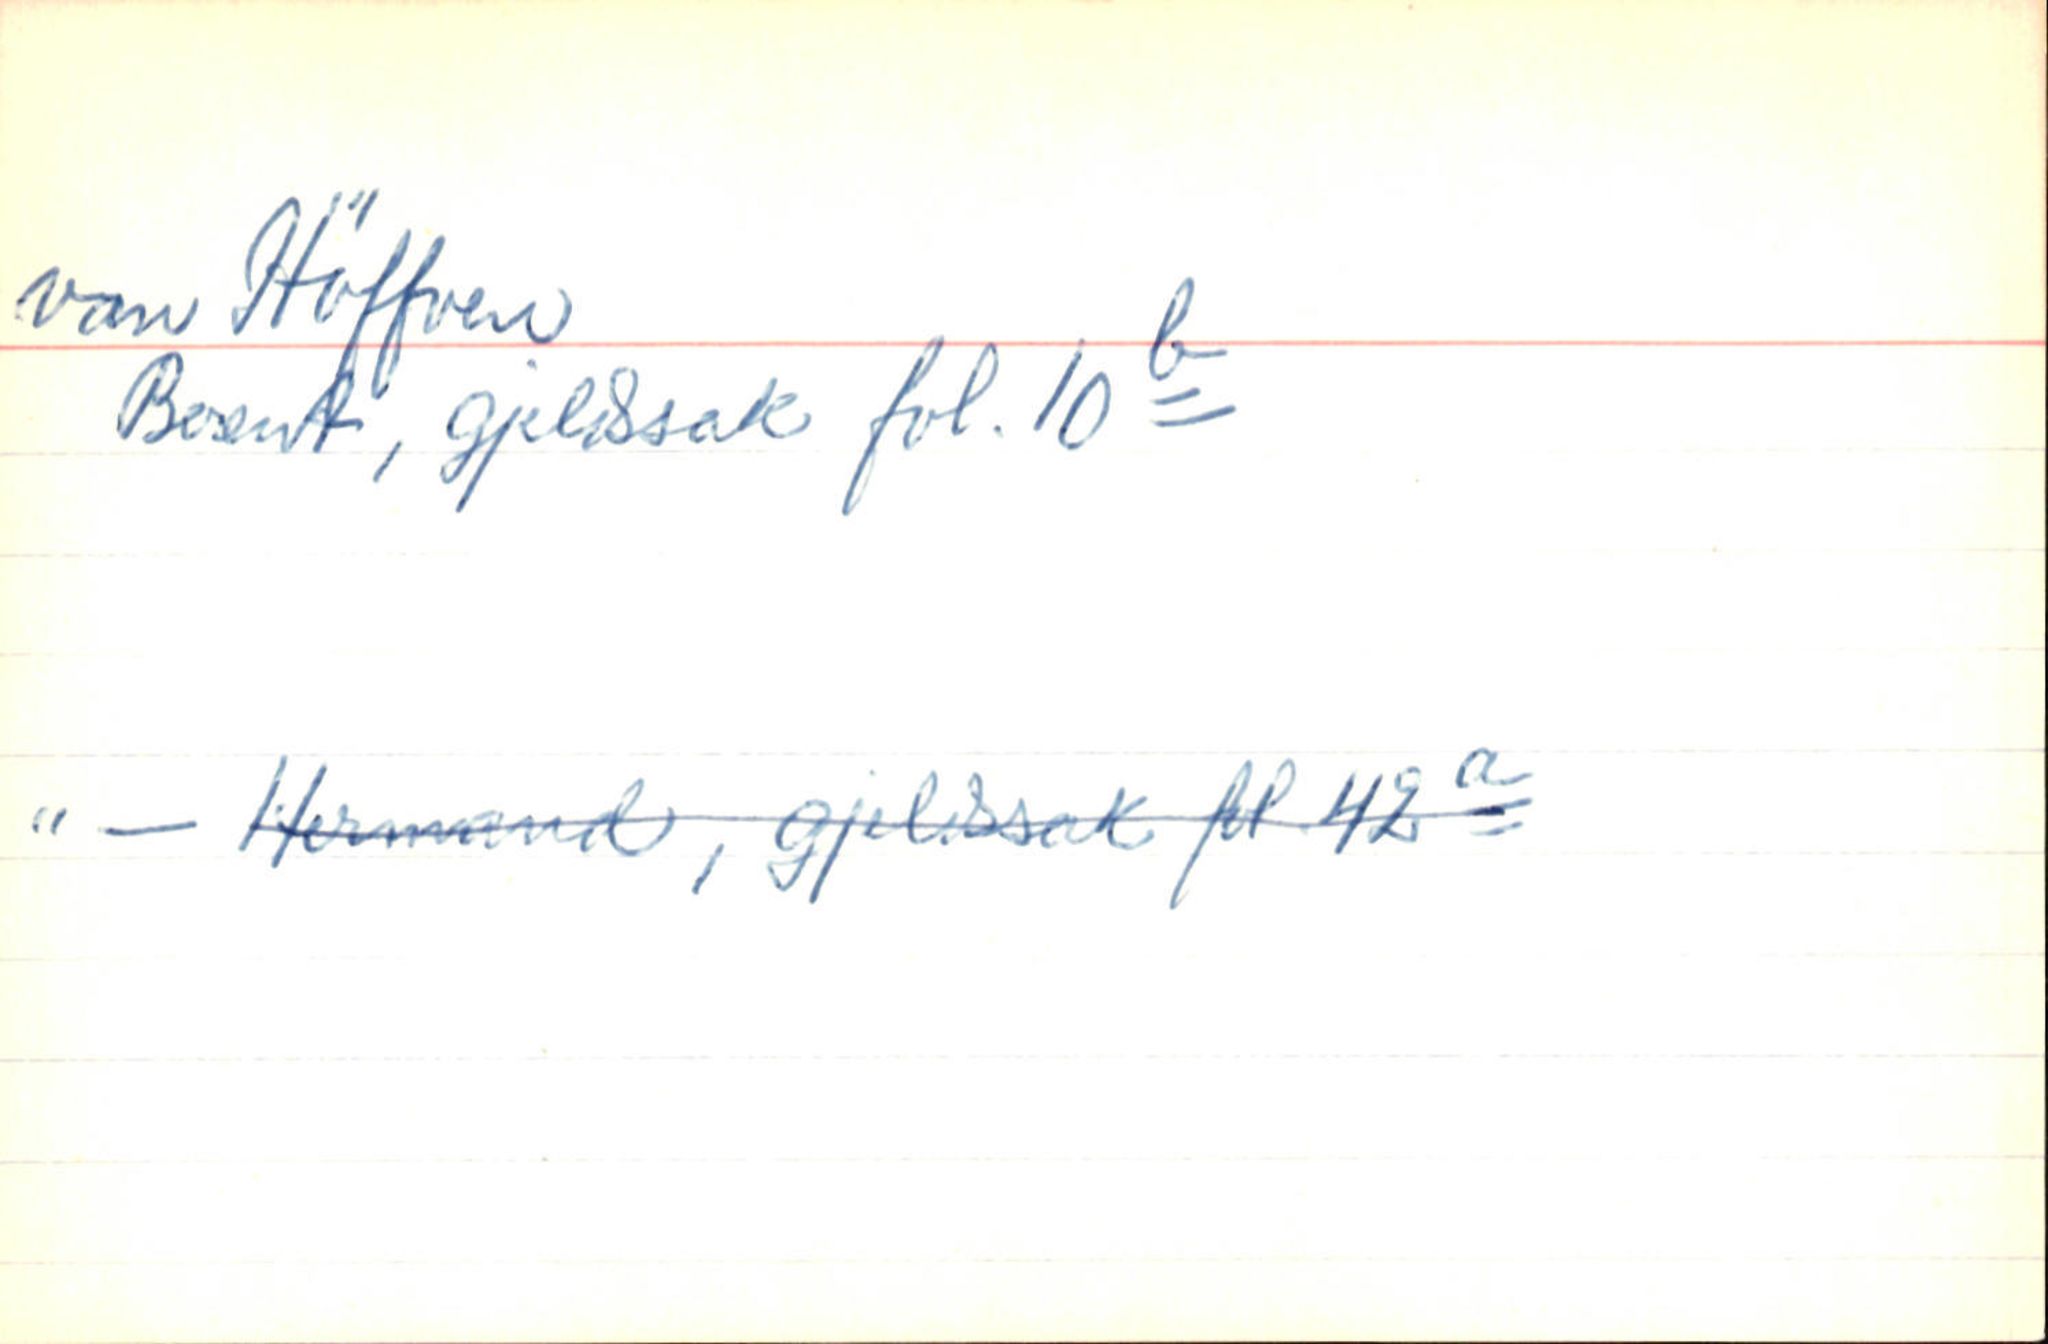 van Höffven
Bernt, gjeldssak fol. 10 b
" — Hermand, gjeldssak fol. 42 a